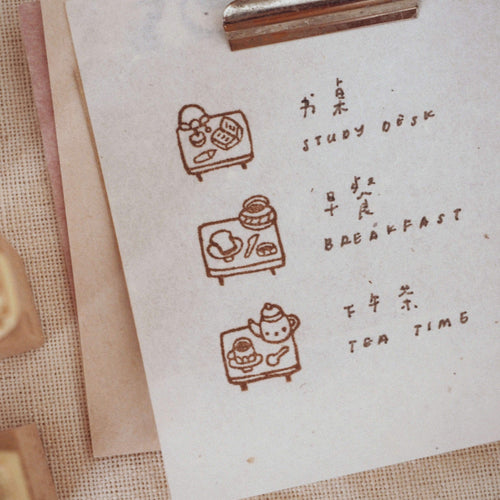 书桌
STUDY DESK
早餐
BREAKFAST
下午茶
TEA TIME